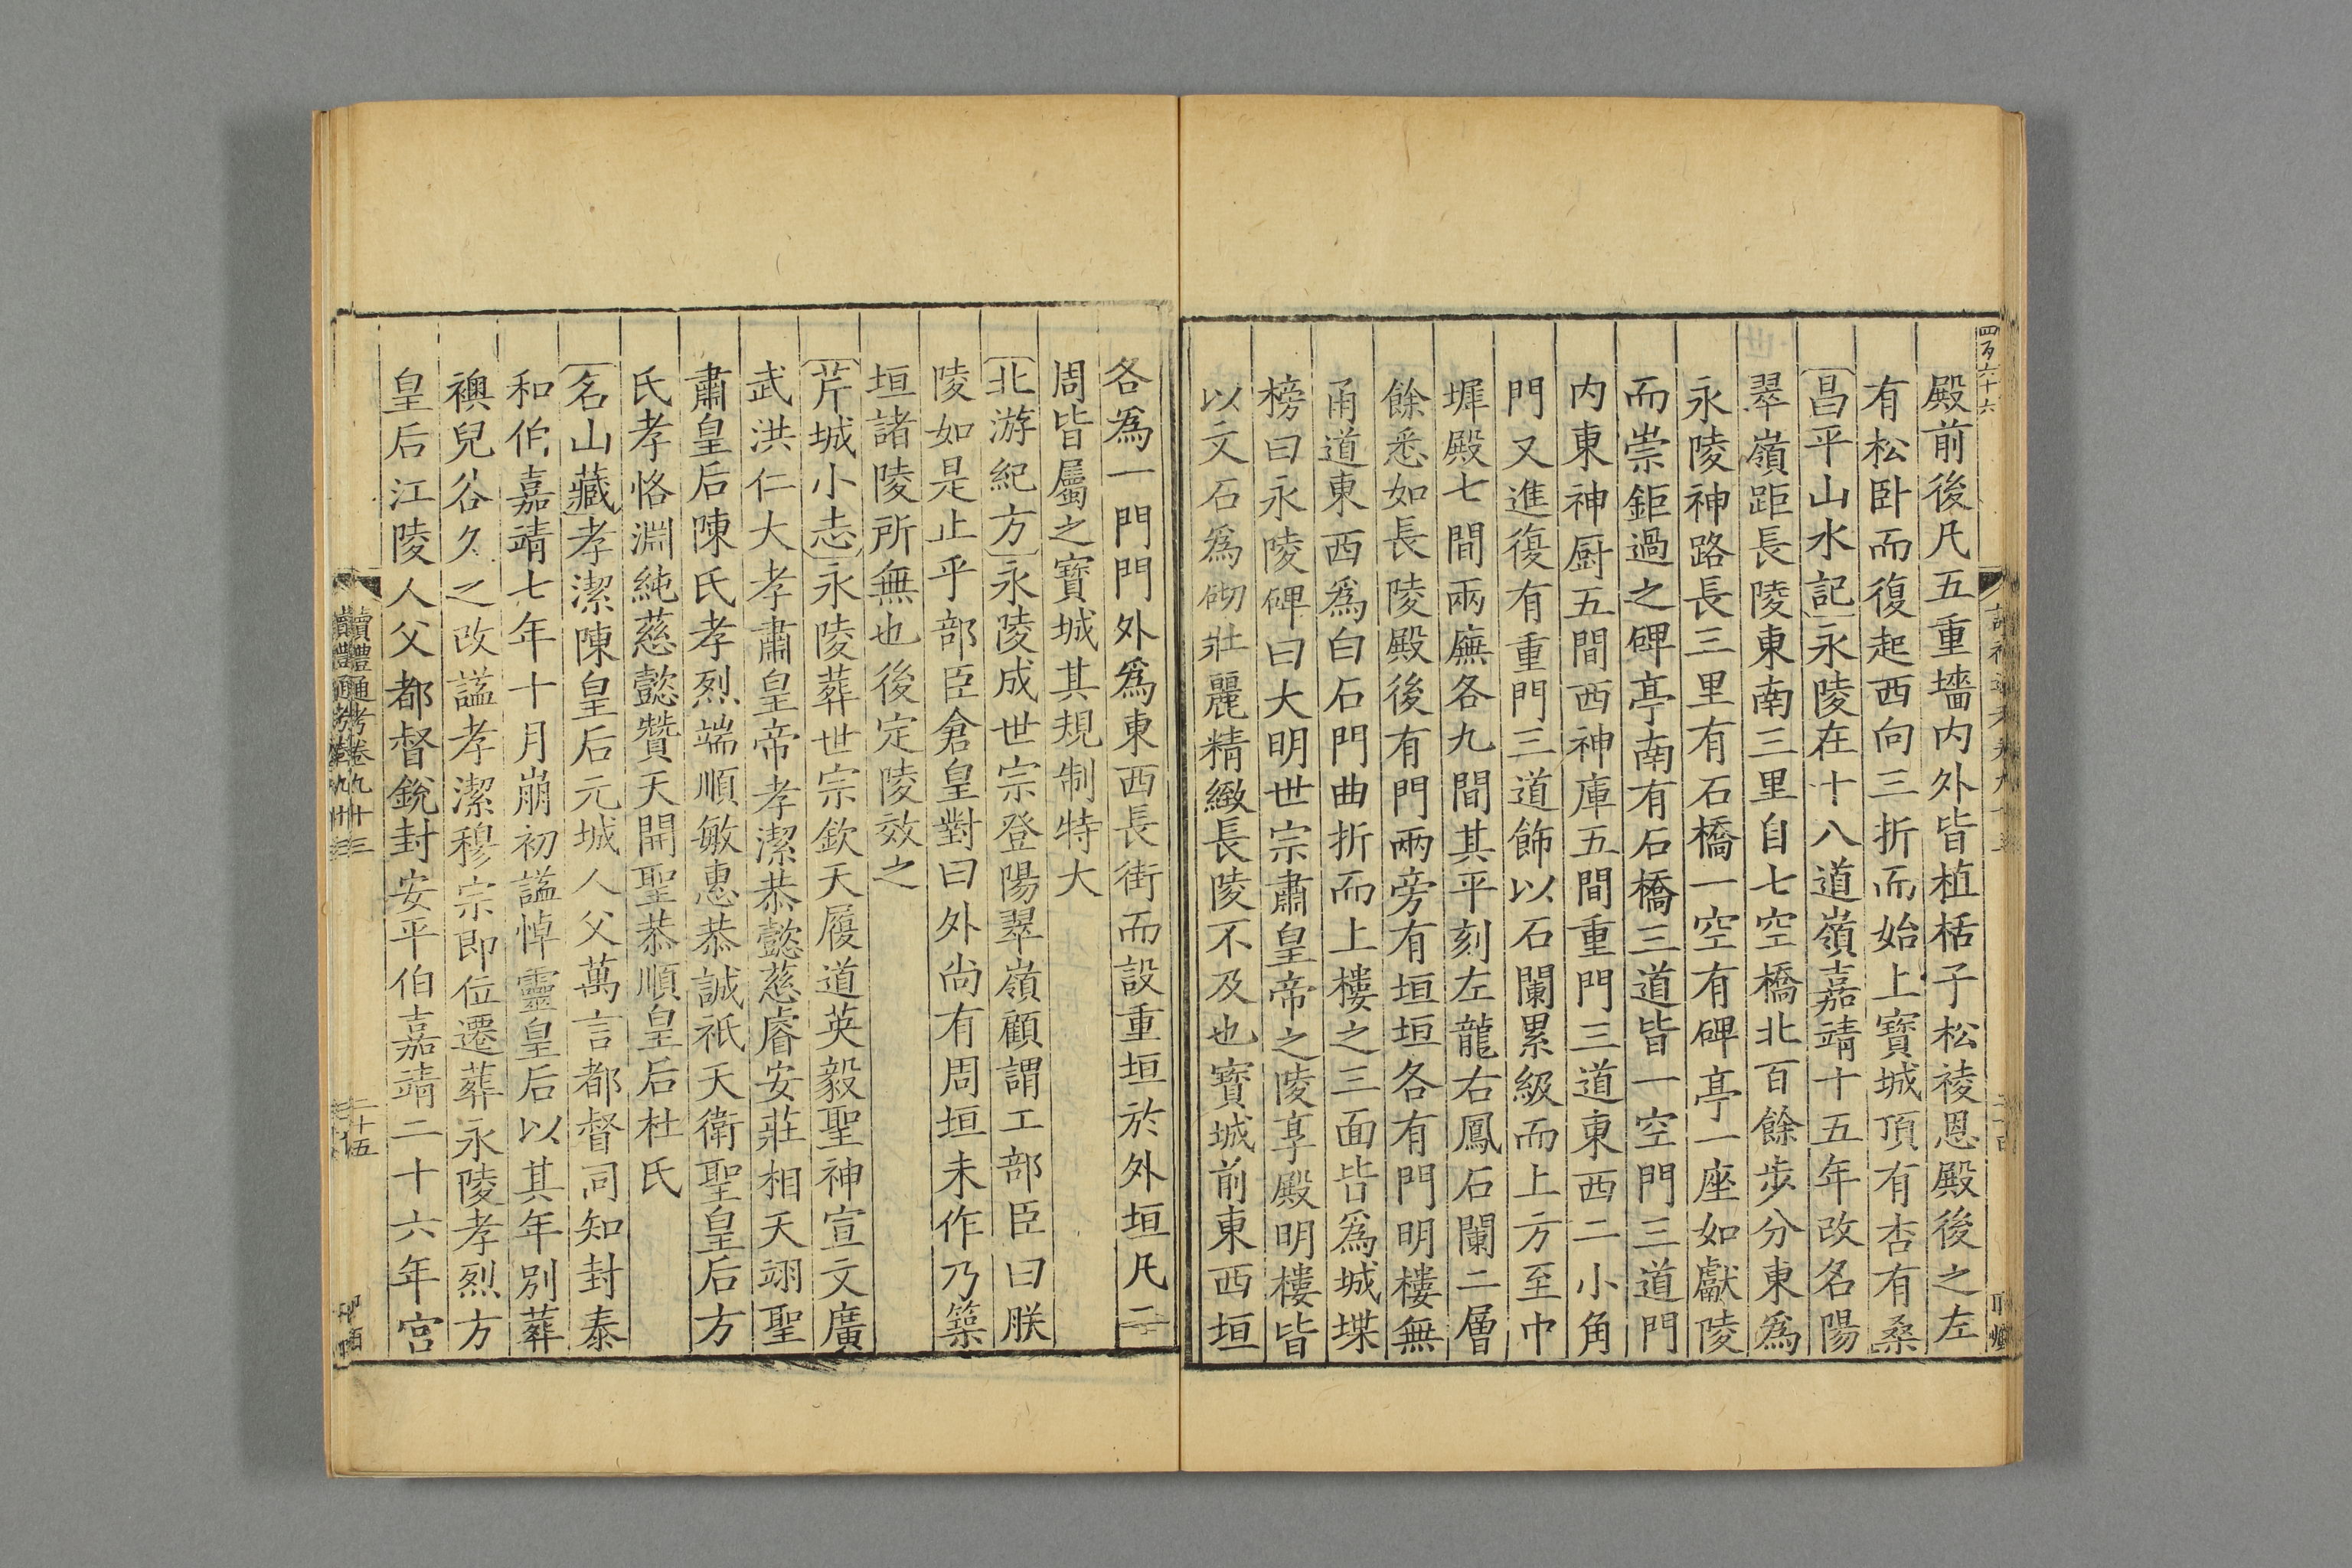 殿前後凡五重墻内外皆植栝子松祾恩殿後之左
有松卧而復起西向三折而始上寶城頂有杏有桑
昌平山水記永陵在十八道嶺嘉靖十五年改名陽
翠嶺距長陵東南三里自七空橋北百餘步分東為
永陵神路長三里有石橋一空有碑亭一座如獻陵
而崇鉅過之碑亭南有石橋三道皆一空門三道門
内東神厨五間西神庫五間重門三道東西二小角
門又進復有重門三道飾以石闌累級而上方至中
墀殿七間兩廡各九間其平刻左龍右鳳石闌二層
餘悉如長陵殿後有門兩旁有垣垣各有門明樓無
甬道東西爲白石門曲折而上樓之三面皆爲城堞
榜曰永陵碑曰大明世宗肅皇帝之陵享殿明樓皆
以文石爲砌壯麗精緻長陵不及也寶城前東西垣
各爲一門門外爲東西長街而設重垣於外垣凡二
周皆屬之寶城其規制特大
北游紀方永陵成世宗登陽翠嶺顧謂工部臣曰朕
陵如是止乎部臣倉皇對曰外尚有周垣未作乃築
垣諸陵所無也後定陵效之
芹城小志永陵葬世宗欽天履道英毅聖神宣文廣
武洪仁大孝肅皇帝孝潔恭懿慈睿安莊相天翊聖
肅皇后陳氏孝烈端順敏惠恭誠祇天衛聖皇后方
氏孝恪淵純慈懿贊天開聖恭順皇后杜氏
名山藏孝潔陳皇后元城人父萬言都督同知封泰
和伯嘉靖七年十月崩初謚悼靈皇后以其年別葬
襖兒谷久之改謚孝潔穆宗即位遷葬永陵孝烈方
皇后江陵人父都督銳封安平伯嘉靖二十六年宮
讀禮通考卷九十三
二十五